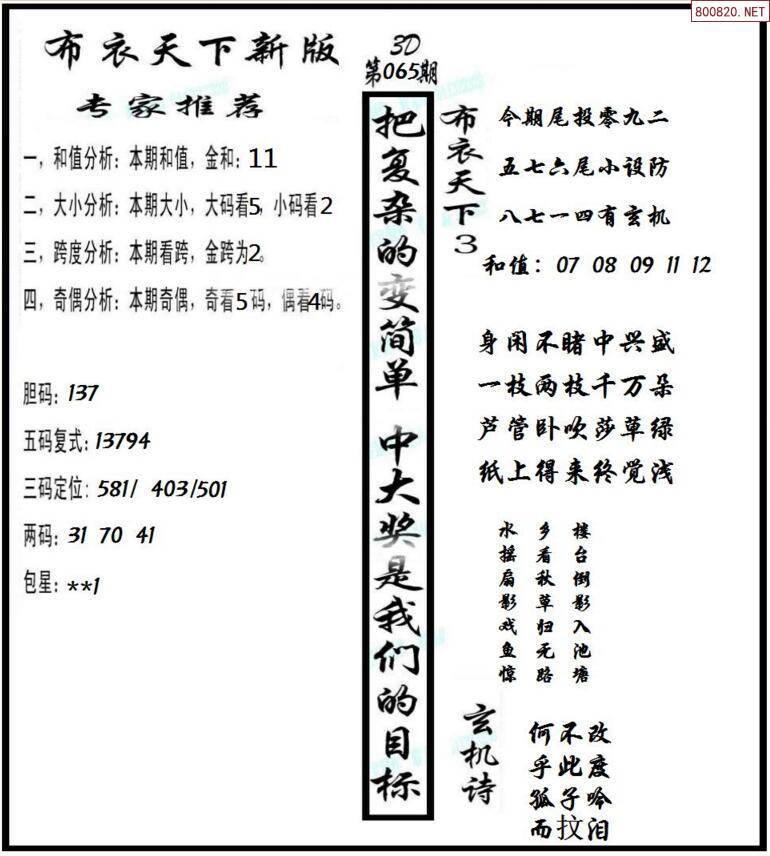 800820.NET
布衣天下新版
专家推荐
一，和值分析：本期和值，金和：11
二，大小分析：本期大小，大码看5，小码看2
三，跨度分析：本期看跨，金跨为2。
四，奇偶分析：本期奇偶，奇看5码，偶看4码。
胆码：137
五码复式：13794
三码定位：581/ 403/501
两码：31 70 41
包星：**1
3D
第065期
把复杂的变简单 中大奖是我们的目标
布衣天下3
今期尾投零九二
五七六尾小设防
八七一四有玄机
和值：07 08 09 11 12
身闲不睹中兴盛
一枝两枝千万朵
芦管卧吹莎草绿
纸上得来终觉浅
楼台倒影入池塘
乡看秋草归无路
水摇扇影戏鱼惊
玄机诗
改度吟泪
不此子抆
何乎孤而